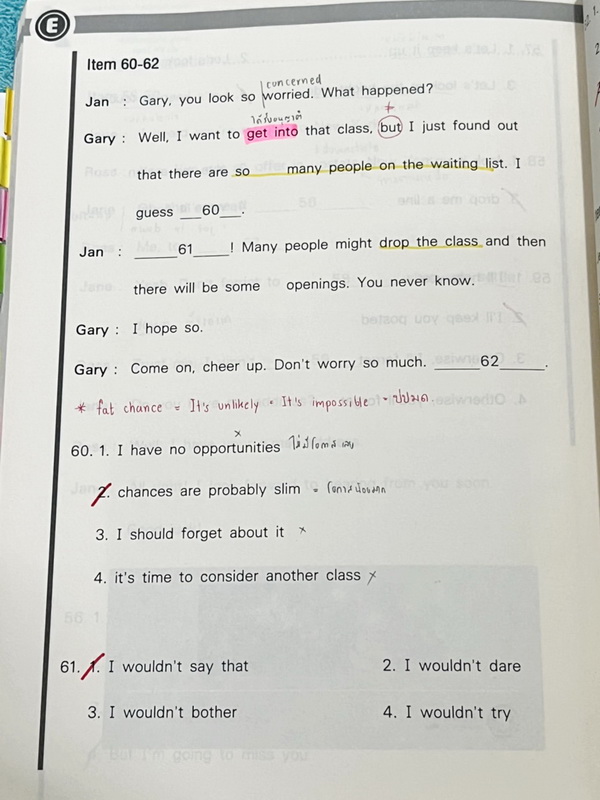 E
Item 60-62
concerned
Jan : Gary, you look so worried. What happened?
Gary : Well, I want to get into that class, but I just found out
that there are so many people on the waiting list. I
guess __60__.
Jan : _____61____! Many people might drop the class and then
there will be some openings. You never know.
Gary : I hope so.
Gary : Come on, cheer up. Don't worry so much. _____62_____.
* fat chance = It's unlikely • It's impossible -
60. 1. I have no opportunities x
2. chances are probably slim =
3. I should forget about it x
4. it's time to consider another class x
61. 1. I wouldn't say that 2. I wouldn't dare
3. I wouldn't bother 4. I wouldn't try